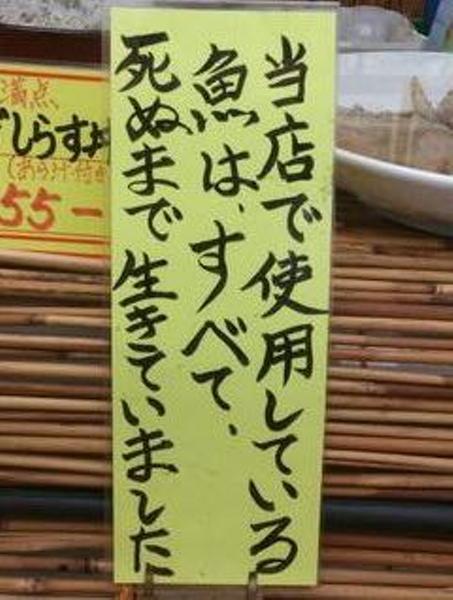 当店で使用している
魚は、すべて、
死ぬまで生きていました
満点、
しらす
55-